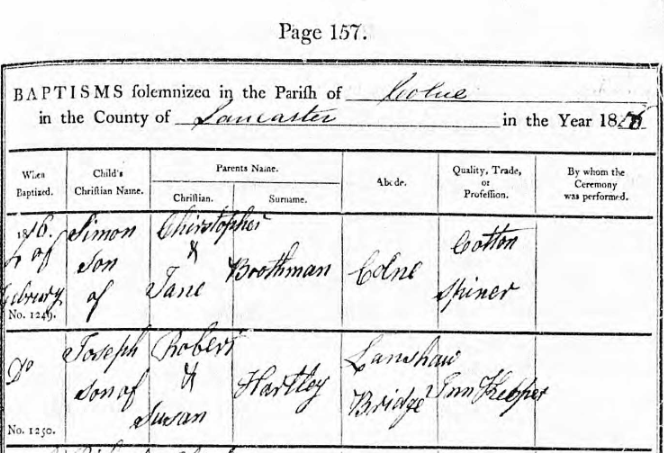 Page 157.
BAPTISMS solemnized in the Parish of Colne
in the County of Lancaster in the Year 1816
When Baptized.
Child's Christian Name.
Parents Name.
Christian.
Surname.
Abode.
Quality, Trade, or Profession.
By whom the Ceremony was performed.
1816.
of
February
No. 1249.
Simon
son
of
Chirstopher
&
Jane
Boothman
Colne
Cotton
Spiner
Do
No. 1250.
Joseph
son of
Robert
&
Susan
Hartley
Lanshaw
Bridge
Inn Keeper